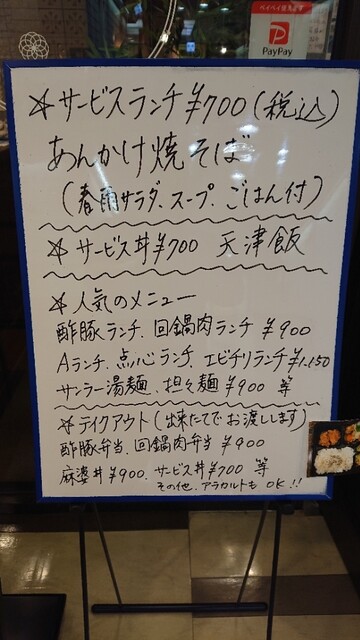 ペイペイ使えます
PayPay
☆サービスランチ ¥700(税込)
あんかけ焼そば
(春雨サラダ、スープ、ごはん付)
☆サービス丼¥700 天津飯
☆人気のメニュー
酢豚ランチ、回鍋肉ランチ ¥900
Aランチ、点心ランチ、エビチリランチ¥1,150
サンラー湯麺、担々麺 ¥900 等
☆テイクアウト(出来たてでお渡しします)
酢豚弁当、回鍋肉弁当 ¥900
麻婆丼 ¥900、サービス丼 ¥700 等
その他、アラカルトも OK!!